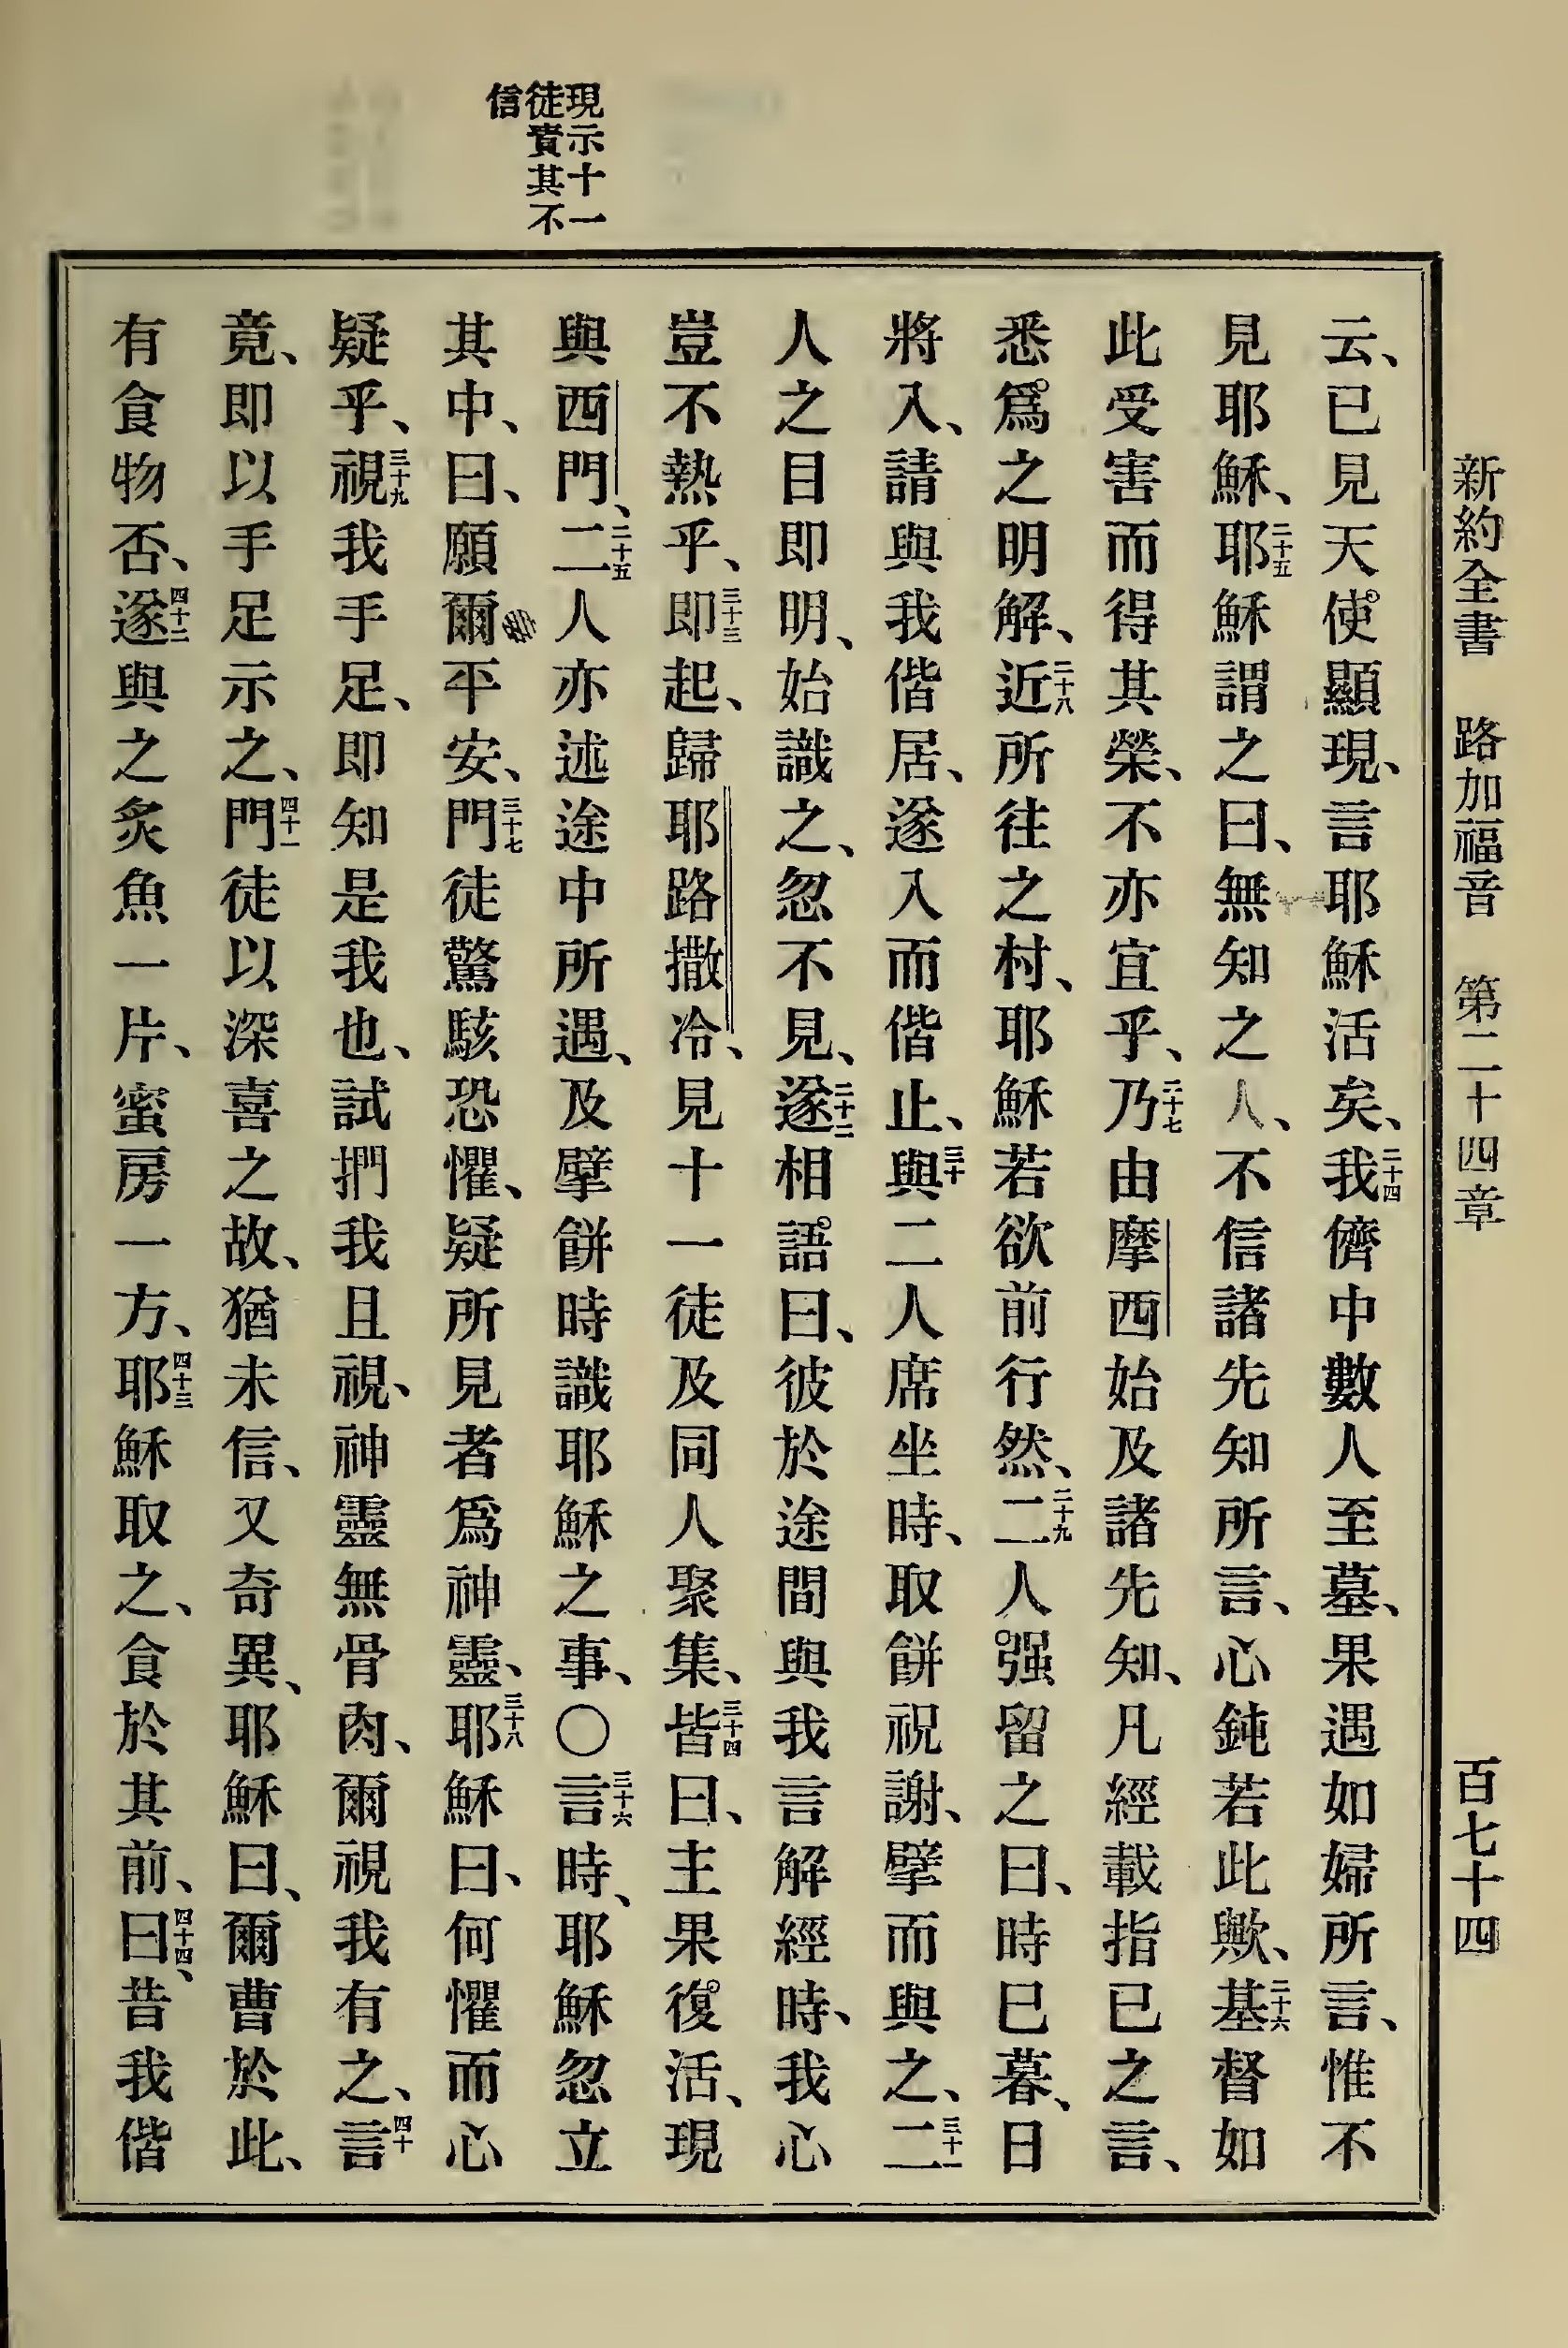 新約全書 路加福音 第二十四章 百七十四
現示十一
徒責其不
信
云、已見天使顯現、言耶穌活矣、二十四我儕中數人至墓、果遇如婦所言、惟不
見耶穌、二十五耶穌謂之曰、無知之人、不信諸先知所言、心鈍若此歟、二十六基督如
此受害而得其榮、不亦宜乎、二十七乃由摩西始及諸先知、凡經載指已之言、
悉爲之明解、二十八近所往之村、耶穌若欲前行然、二十九二人强留之曰、時巳暮、日
將入、請與我偕居、遂入而偕止、三十與二人席坐時、取餅祝謝、擘而與之、三十一二
人之目即明、始識之、忽不見、三十二遂相語曰、彼於途間與我言解經時、我心
豈不熱乎、三十三即起、歸耶路撒冷、見十一徒及同人聚集、三十四皆曰、主果復活、現
與西門、二十五二人亦述途中所遇、及擘餅時識耶穌之事、○三十六言時、耶穌忽立
其中、曰、願爾平安、三十七門徒驚駭恐懼、疑所見者爲神靈、三十八耶穌曰、何懼而心
疑乎、三十九視我手足、即知是我也、試捫我且視、神靈無骨肉、爾視我有之、四十言
竟、即以手足示之、四十一門徒以深喜之故、猶未信、又奇異、耶穌曰、爾曹於此、
有食物否、四十二遂與之炙魚一片、蜜房一方、四十三耶穌取之、食於其前、四十四、曰昔我偕